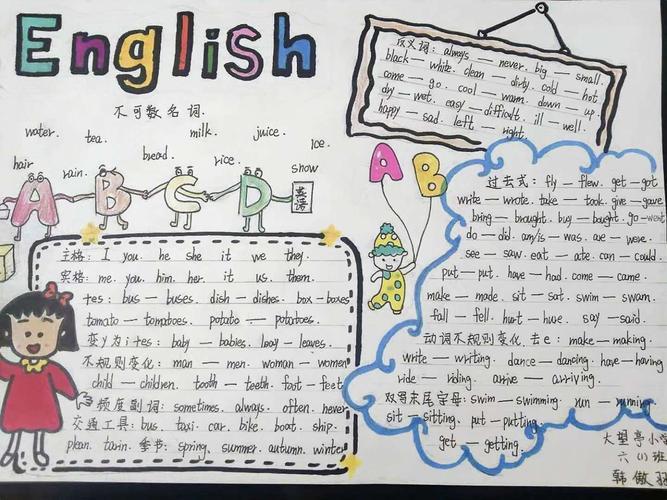 English
不可数名词.
water. tea. milk. juice. Ice.
hair rain. bread. rice. snow
A B C D 英语
主格: I you. he she it we they.
宾格: me. you. him. her. it us. them.
+es: bus — buses. dish — dishes. box - boxes
tomato — tomatoes. potato — potatoes.
变y为i+es: baby — babies. leay — leaves.
不规则变化: man — men. woman — women
child — children. tooth — teeth. foot — feet
频度副词: sometimes. always. often. never
交通工具: bus. taxi. car. bike. boat. ship.
plean. tarin. 季节: spring. summer. autumn. winter
反义词: always — never. big — small
black — white. clean — dirty. cold — hot
come — go. cool — warm. down — up.
dry — wet. easy — difficult. ill — well.
happy — sad. left — right.
A B
过去式: fly — flew. get — got
write — wrote. take — took. give — gave
bring — brought. buy — bought. go — went
do — did. am/is — was. are — were.
see — saw. eat — ate. can — could.
put — put. have — had. come — came.
make — made. sit — sat. swim — swam.
fall — fell. hurt — hurt. say — said.
动词不规则变化. 去e: make — making.
write — writing. dance — dancing. have — having
ride — riding. arrive — arriving.
双写末尾字母: swim — swimming. run — running
sit — sitting. put — putting.
get — getting.
大望亭小学
六(1)班
韩傲